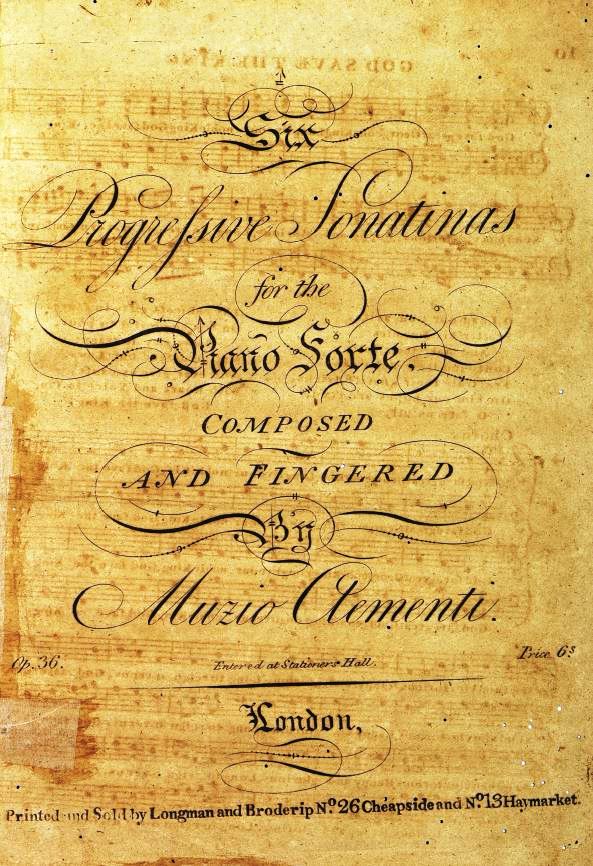 GOD SAVE THE KING
10
Six
Progreſsive Sonatinas
for the
Piano Forte,
COMPOSED
AND FINGERED
By
Muzio Clementi.
Op. 36.
Entered at Stationers Hall.
Price 6s
London,
Printed and Sold by Longman and Broderip No. 26 Cheapside and No. 13 Haymarket.